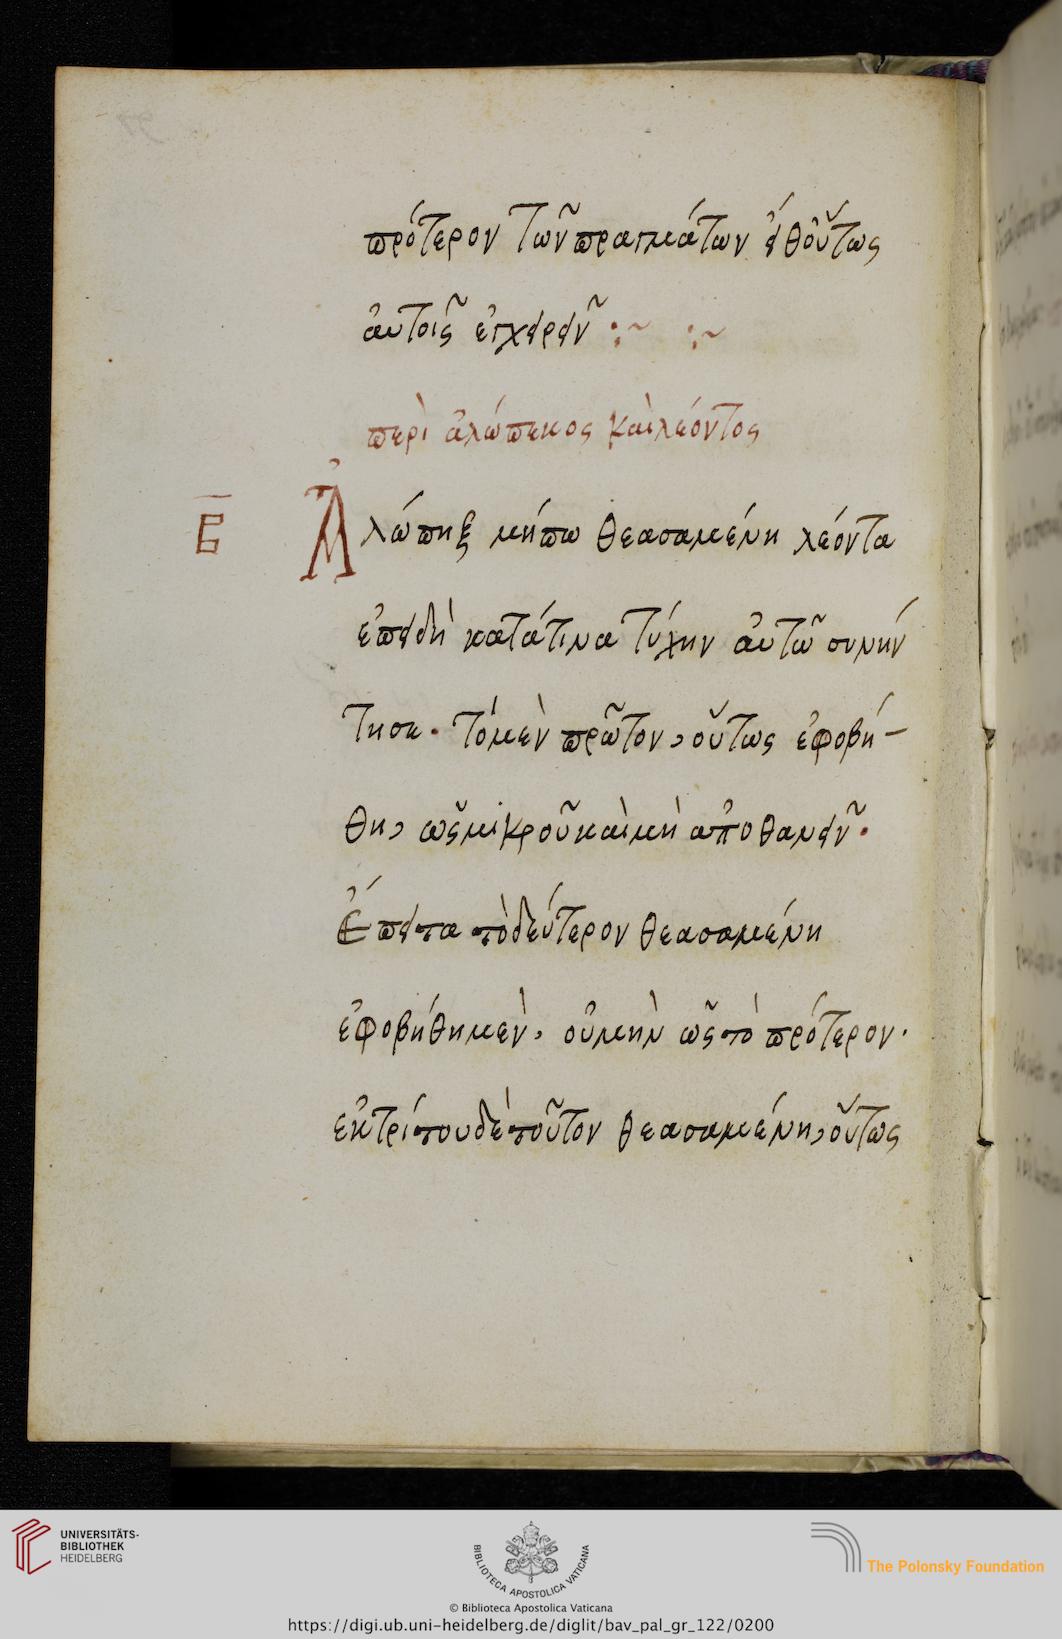 πρότερον τῶν πραγμάτων εἶθ οὕτως
αὐτοῖς ἐγχειρεῖν :~ :~
περὶ ἀλώπεκος καὶ λέοντος
β Ἀλώπηξ μήπω θεασαμένη λέοντα
ἐπειδὴ κατά τινα τύχην αὐτῶ συνήν
τησε. τὸ μὲν πρῶτον, οὕτως ἐφοβή-
θη, ὡς μικροῦ καὶ μὴ ἀποθανεῖν.
Ἔπειτα τὸ δεύτερον θεασαμένη
ἐφοβήθη μὲν, οὐ μὴν ὡς τὸ πρότερον.
ἐκ τρίτου δὲ τοῦτον θεασαμένη, οὕτως
UNIVERSITÄTS-
BIBLIOTHEK
HEIDELBERG
BIBLIOTECA APOSTOLICA VATICANA
The Polonsky Foundation
© Biblioteca Apostolica Vaticana
https://digi.ub.uni-heidelberg.de/diglit/bav_pal_gr_122/0200